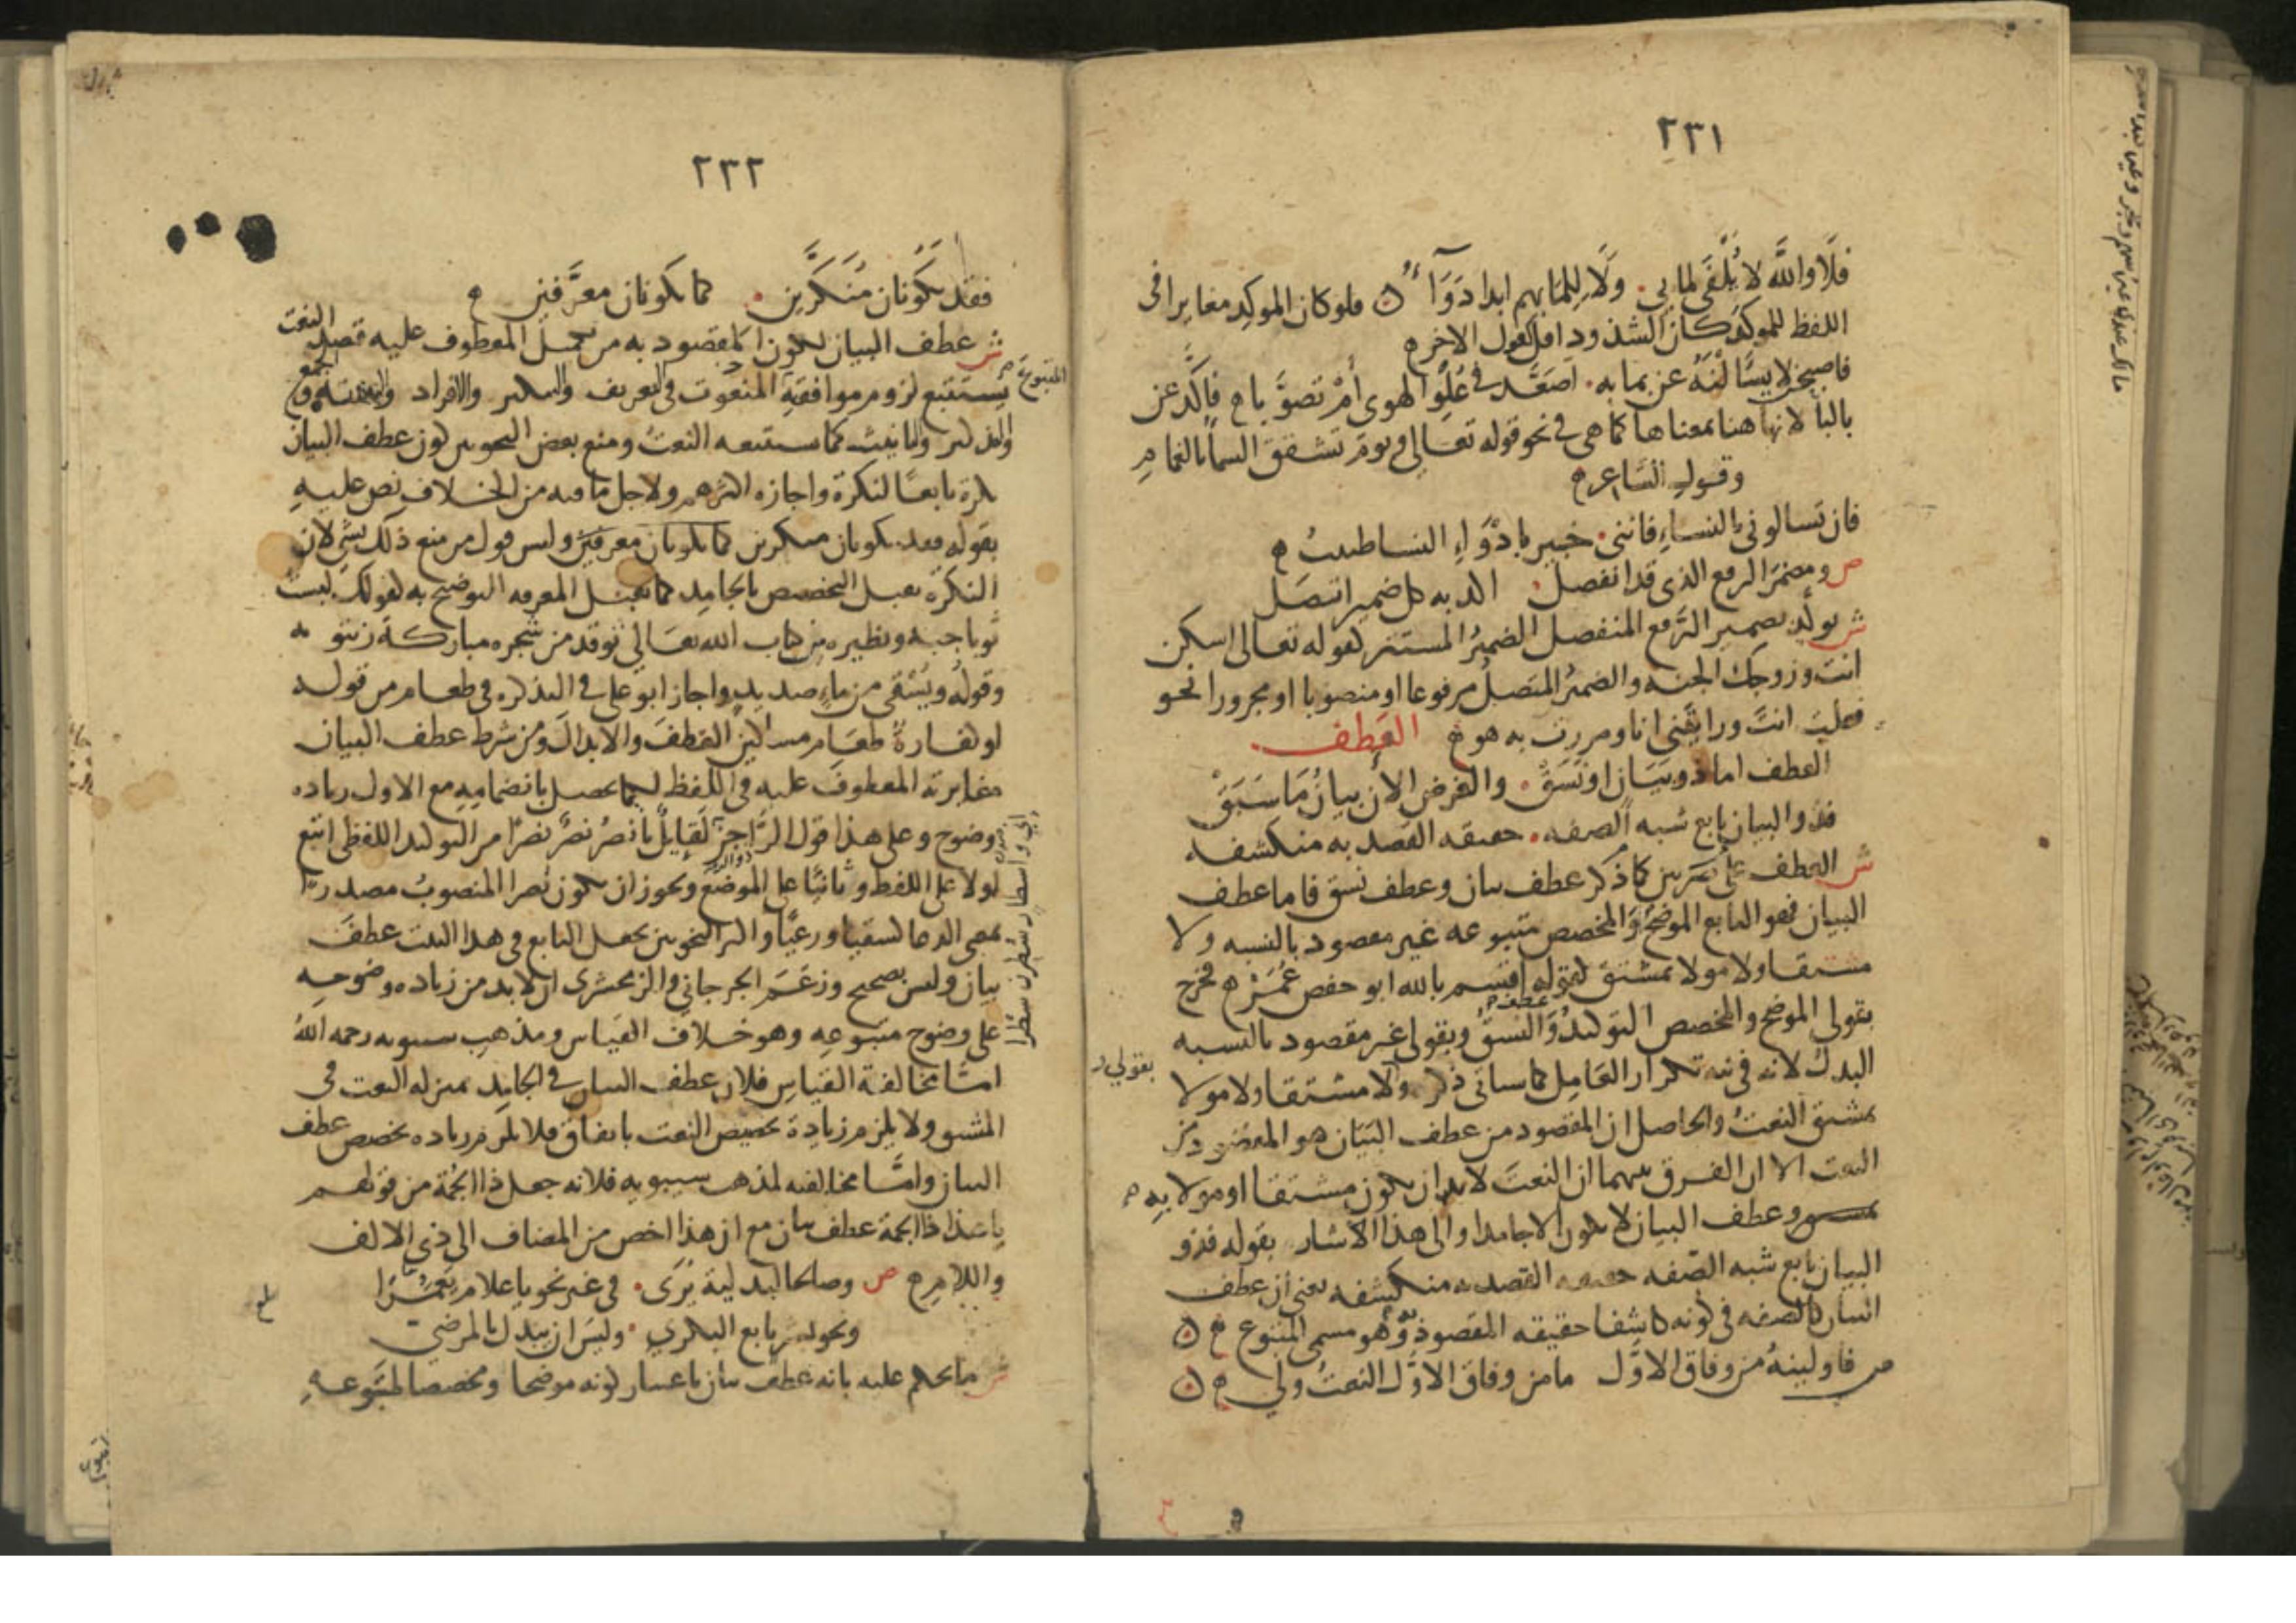 ٢٣١
فلا والله لا يُلْفَى لما بي . ولا للما بهم ابدا دَوَآءُ ن فلو كان الموكد مغايرا فى
اللفظ للموكد كان الشذوذ اقل كقول الاخر ه
فاصبحن لا يسألنه عن بما به . اصعّد فى علو الهوى أم تصوّبا ه فاكّد عن
بالبا لانها هنا بمعناها كما هى فى نحو قوله تعالى ويوم تشقق السما بالغمام
وقول الشاعر ه
فان تسالونى بالنساء فاننى . خبير بادواء النسا طبيب ه
ص ومضمر الرفع الذى قد انفصل . اكد به كل ضمير اتصل
ش يوكد بضمير الرفع المنفصل الضمير المستتر كقوله تعالى اسكن
انت وزوجك الجنه والضمير المتصل مرفوعا او منصوبا او مجرورا نحو
فعلت انت ورايتنى انا ومررت به هو العطف
العطف اما ذو بيان او نسق . والغرض الان بيان ما سبق
فذو البيان تابع شبه الصفه . حقيقه القصد به منكشفه
ش العطف على ضربين كما ذكر عطف بيان وعطف نسق فاما عطف
البيان فهو التابع الموضح والمخصص متبوعه غير مقصود بالنسبه ولا
مشتقا ولا مولا بمشتق كقوله اقسم بالله ابو حفص عمر ه فخرج
بقولى الموضح والمخصص التوكيد وعطف النسق وبقولى غير مقصود بالنسبه
البدل لانه فى نيه تكرار العامل كما سياتى ذكره وبقولى ولا مشتقا ولا مولا
بمشتق النعت والحاصل ان المقصود من عطف البيان هو المقصود من
النعت الا ان الفرق بينهما ان النعت لابد ان يكون مشتقا او مولا به
وعطف البيان لا يكون الا جامدا والى هذا الاشار بقوله فذو
البيان تابع شبه الصفه حقيقه القصد به منكشفه يعنى ان عطف
البيان كالصفه فى كونه كاشفا حقيقه المقصود به وهو مسمى المتبوع ن
ص فاولينه من وفاق الاول ما من وفاق الاول النعت ولى ه ن
٢٣٢
فقد يكونان منكّرين . كما يكونان معرّفين ه
ش عطف البيان لكون المقصود به من تكميل المعطوف عليه قصد النعت
يستتبع لزوم موافقة المتبوع فى التعريف والتنكير والافراد والتثنية والجمع
والتذكير والتانيث كما يستتبعه النعت ومنع بعض النحويين كون عطف البيان
نكرة تابعا لنكرة واجازه اكثرهم ولاجل ما فيه من الخلاف نص عليه
بقوله فقد يكونان منكرين كما يكونان معرفين وليس قول من منع ذلك بشى لان
النكرة تقبل التخصيص بالجامد كما تقبل المعرفه التوضيح به كقولك لبست
ثوبا جبة ونظيره من كتاب الله تعالى توقد من شجره مباركة زيتونه
وقوله ويسقى من ماء صديد واجاز ابو على فى التذكره فى طعام من قوله
او كفارة طعام مساكين العطف والابدال ومن شرط عطف البيان
مغايرته المعطوف عليه فى اللفظ ليحصل بانضمامه مع الاول زياده
وضوح وعلى هذا قول الراجز لقايل يا نصر نصر نصرا من التوكيد اللفظى اتبع
اولا على اللفظ وثانيا على الموضع ويجوز ان يكون نصرا المنصوب مصدرا
بمعنى الدعا كسقيا ورعيا واكثر النحويين يجعل التابع فى هذا البيت عطف
بيان وليس بصحيح وزعم الجرجانى والزمخشرى ان لابد من زياده وضوحه
على وضوح متبوعه وهو خلاف القياس ومذهب سيبويه رحمه الله
اما مخالفة القياس فلان عطف البيان فى الجامد بمنزله النعت فى
المشتق ولا يلزم زيادة تخصيص النعت باتفاق فلا يلزم زياده تخصص عطف
البيان واما مخالفته لمذهب سيبويه فلانه جعل ذا الجمة من قولهم
يا هذا ذا الجمة عطف بيان مع ان هذا اخص من المضاف الى ذى الالف
واللام ه ص وصالحا لبدلية يُرَى . فى غير نحو يا غلام يعمرا
ونحو بشر تابع البكرى . وليس ان يبدل بالمرضى
ش ما يحكم عليه بانه عطف بيان باعتبار كونه موضحا ومخصصا لمتبوعه